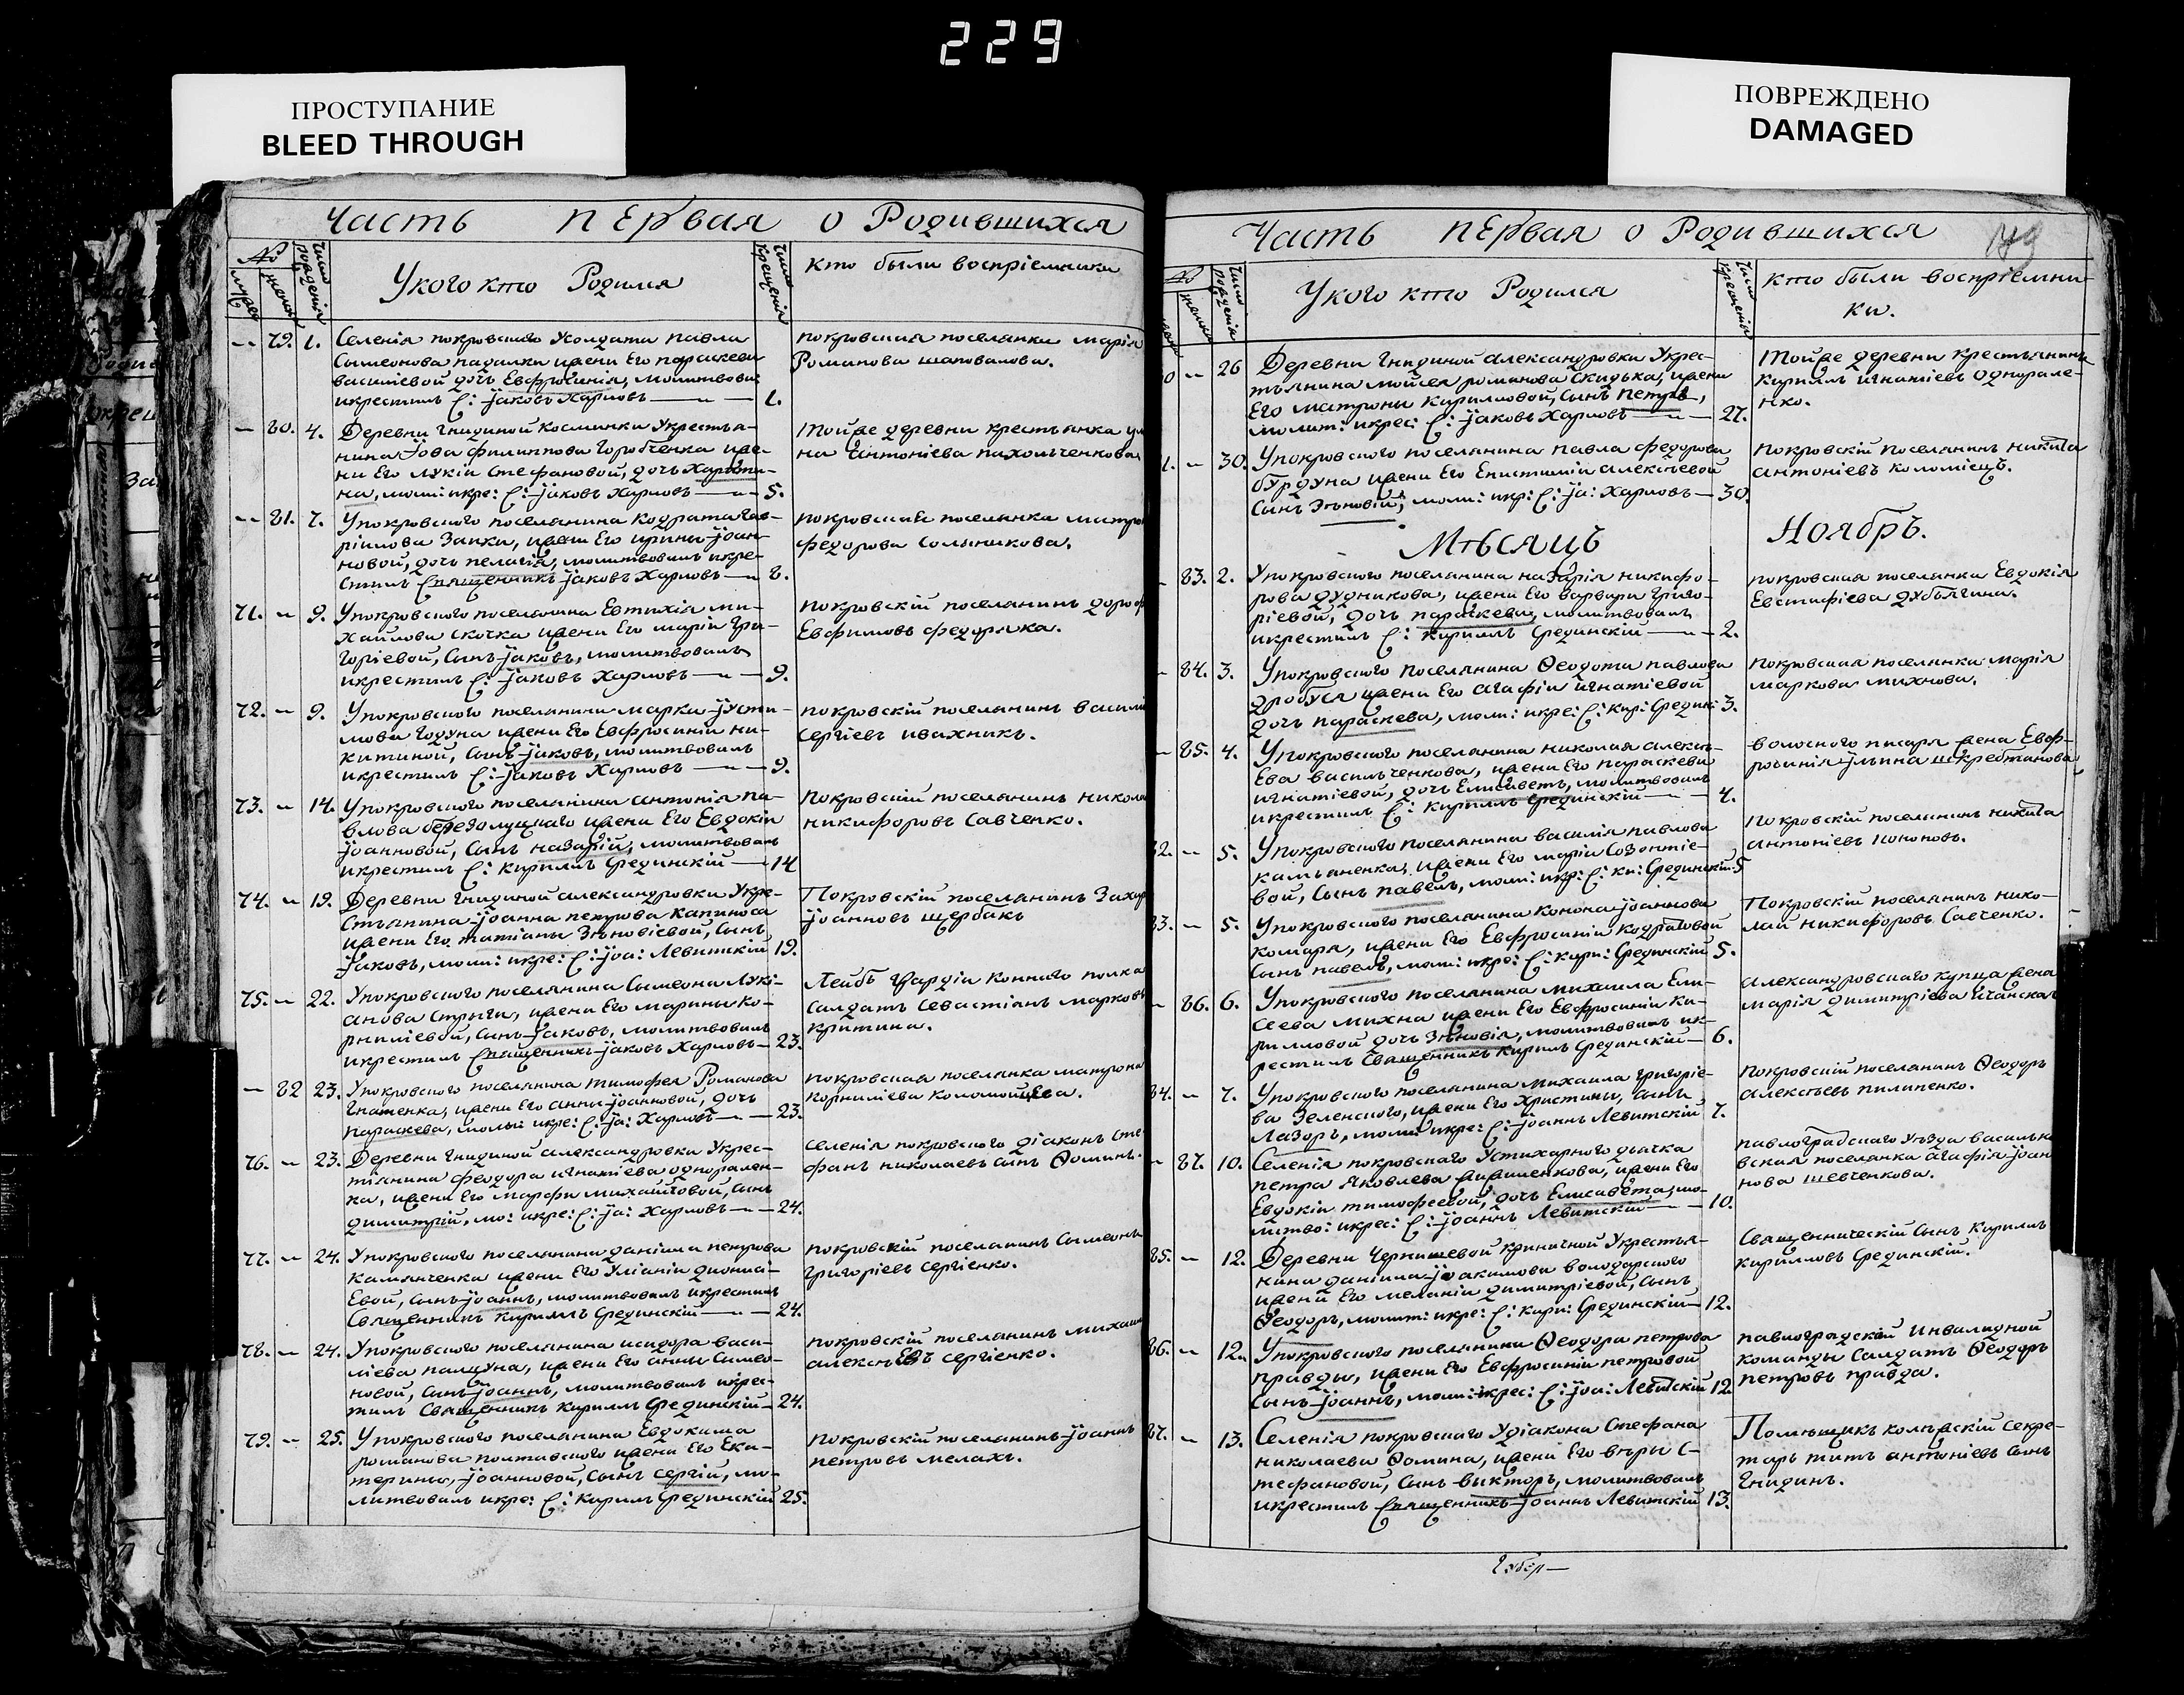 229
ПРОСТУПАНИЕ
BLEED THROUGH
ПОВРЕЖДЕНО
DAMAGED
Часть первая о Родившихся
№
Число рожденія
Укого кто Родился
Число крещенія
Кто были воспріемники
79. 1. Селенія покровского Усолдата павла
Сымеонова падалки ижени Его параскеви
василіевой дочь Евфросинія, молитвовал
икрестилъ С: Іаковъ Харловъ 1.
покровская поселянка марія
Романова шаповалова.
80. 4. Деревни Гнидиной Косминки Укрестья-
нина Іова филиппова Горобченка иже-
ни Его лукіи Стефановой, дочь Харити-
на, моли: икре: С: Іаковъ Харловъ 5.
тойже деревни крестьянка
на Антоніева пахольченкова
81. 7. Упокровского поселянина Кодрата Гав-
ріилова Заики, ижени Его ирины Іоан-
новой, дочь пелагія, молитвовалъ икре-
стилъ Священникъ Іаковъ Харловъ 8.
покровская поселянка матро
федорова Сольникова.
71. 9. Упокровского поселянина Евтихія ми-
хайлова Скочка ижени Его маріи Гри-
горіевой, Сынъ Іаковъ, молитвовалъ
икрестилъ С: Іаковъ Харловъ 9.
покровскій поселянинъ дороф
Евфимовъ федоряка.
72. 9. Упокровского поселянина марка Іусти-
мова Годуна ижени Его Евфросиніи ни-
китиной, Сынъ Іаковъ, молитвовалъ
икрестилъ С: Іаковъ Харловъ 9.
покровскій поселянинъ васил
Сергіевъ ивахникъ.
73. 14. Упокровского поселянина антонія па-
влова березолуцкаго ижени Его Евдокіи
Іоанновой, Сынъ назарій, молитвовалъ
икрестилъ С: Кирилъ Срединскій 14
Покровскій поселянинъ никола
никифоровъ Савченко.
74. 19. Деревни Гнидиной александровки Укре-
стьянина Іоанна петрова Капиноса
ижени Его татіаны Зѣновіевой, Сынъ
Іаковъ, моли: икре: С: Іоа: Левитскій 19.
Покровскій поселянинъ Захар
Іоанновъ щербакъ
75. 22. Упокровского поселянина Сымеона Луки-
анова Стрыги, ижени Его марины Ко-
рниліевой, Сынъ Іаковъ, молитвовалъ
икрестилъ Священникъ Іаковъ Харловъ 23.
Лейбъ Гвардіи Конного полка
Салдатъ Севастіанъ марков
критина.
82 23. Упокровского поселянина тимофея Романова
Гнатенка, ижени Его анны Іоанновой, дочь
параскева, молы: икре: С: Іа: Харловъ 23.
покровская поселянка матрона
Корниліева Коломойцева.
76. 23. Деревни Гнидиной александровки Укрес-
тьянина феодора игнатіева однорален-
ка, ижени Его марфи михайловой, Сынъ
димитрій, мо: икре: С: Іа: Харловъ 24.
Селенія покровского діаконъ Сте-
фанъ николаевъ Сынъ Ѳоминъ.
77. 24. Упокровского поселянина даніила петрова
Камянченка ижени Его Уліаніи диониси-
Евой, Сынъ Іоаннъ, молитвовалъ икрестилъ
Священникъ Кириллъ Срединскій 24.
покровскій поселянинъ Сымеонъ
Григоріевъ Сергіенко.
78. 24. Упокровского поселянина исидора васи-
ліева палцуна, ижени Его анны Симео-
новой, Сынъ Іоаннъ, молитвовалъ икрес-
тилъ Священникъ Кириллъ Срединскій 24.
покровскій поселянинъ михаи
алексѣЕвъ Сергіенко.
79. 25. Упокровского поселянина Евдокима
Романова полтавского ижени Его Ека-
терины, Іоанновой, Сынъ Сергій, мо-
литвовалъ икре: С: Кирилъ Срединскій 25.
покровскій поселянинъ Іоаннъ
петровъ мелахъ.
Часть первая о Родившихся
№
Число рожденія
Укого кто Родился
Число крещенія
Кто были воспріемни-
ки.
0 26 Деревни Гнидиной александровки Укрес-
тьянина мойсея романова Скидька, ижени
Его матроны Кириловой, Сынъ петръ,
молит: икрес: С: Іаковъ Харловъ 27.
тойже деревни Крестьянинъ
Кирилъ игнатіевъ однорале-
нко.
1. 30. Упокровского поселянина павла федорова
бурдуна ижени Его Епистиміи алексѣевой
Сынъ Зѣновій, моли: икр: С: Іа: Харловъ 30.
Покровскій поселянинъ никита
антоніевъ Коломіецъ.
Мѣсяцъ Ноябръ.
83. 2. Упокровского поселянина назарія никифо-
рова дудникова, ижени Его варвари Григо-
ріевой, дочь параскеви, молитвовалъ
икрестилъ С: Кириллъ Срединскій 2.
покровская поселянка Евдокія
Евстафіева дубягина.
84. 3. Упокровского поселянина Ѳеодота павлова
дробуса ижени Его агафіи игнатіевой
дочь параскева, моли: икре: С: Кир: Средин: 3.
покровская поселянка марія
маркова михнова.
85. 4. Упокровского поселянина николая алексѣ-
Ева васильченкова, ижени Его параскеви
игнатіевой, дочь Елисаветъ, молитвовалъ
икрестилъ С: Кириллъ Срединскій 4.
волосного писаря жена Евф-
росинія ильина шкребтанова
32. 5. Упокровского поселянина василія павлова
Камьяненка, ижени Его маріи Созонтіе-
вой, Сынъ павелъ, моли: икр: С: ки: Срединскій 5
Покровскій поселянинъ никита
антоніевъ Кононовъ.
33. 5. Упокровского поселянина Конона Іоаннова
Комара, ижени Его Евфросиніи Кодратовой
Сынъ павелъ, моли: икре: С: Кири: Срединскій 5.
Покровскій поселянинъ нико-
лай никифоровъ Савченко.
86. 6. Упокровского поселянина михаила Ели-
сеева михна ижени Его Евфросиніи Ки-
рилловой дочь Зѣновія, молитвовалъ ик-
рестилъ Священникъ Кирилъ Срединскій 6.
александровского купца жена
марія димитріева
34. 7. Упокровского поселянина михаила Григоріе-
ва Зеленского, ижени Его Христины, Сынъ
Лазоръ, моли: икре: С: Іоаннъ Левитскій 7.
покровскій поселянинъ Ѳеодоръ
алексѣевъ пилипенко.
87. 10. Селенія покровского Устихарного дьячка
петра Яковлева ижени Его
Евдокіи тимофеевой, дочь Елисавета, мо-
литво: икрес: С: Іоаннъ Левитскій 10.
павлоградскаго Уѣзда василько
вская поселянка агафія Іоан
нова шевченкова.
85. 12. Деревни Чернишевой криничной Укрестья-
нина даніила Іоакимова володарского
ижени Его меланіи димитріевой, Сынъ
Ѳеодоръ, молит: икре: С: Кири: Срединскій 12.
Священническій Сынъ Кирилъ
Кириловъ Срединскій.
86. 12. Упокровского поселянина Ѳеодора петрова
правды, ижени Его Евфросиніи петровой
Сынъ Іоаннъ, моли: икрес: С: Іоа: Левитскій 12
павлоградской Инвалидной
Команды Салдатъ Ѳеодоръ
петровъ правда.
87. 13. Селенія покровского Удіакона Стефана
николаева Ѳомина, ижени Его вѣры С-
тефановой, Сынъ викторъ, молитвовалъ
икрестилъ Священникъ Іоаннъ Левитскій 13.
Помѣщикъ колежскій секре-
тарь титъ антоніевъ Сынъ
Гнидинъ.